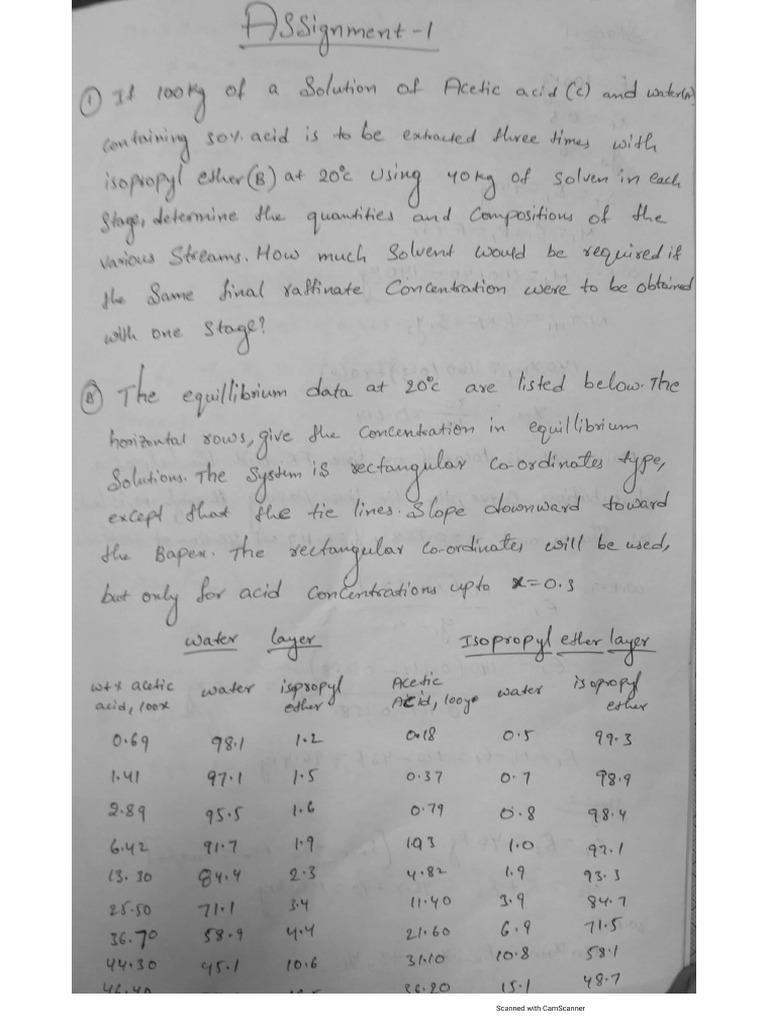 Assignment-1
① If 100Kg of a Solution of Acetic acid (C) and water(A)
containing 30% acid is to be extracted three times with
isopropyl ether (B) at 20°C Using 40kg of Solven in each
Stage, determine the quantities and Compositions of the
various Streams. How much Solvent would be required if
the Same final raffinate Concentration were to be obtained
with one Stage?
The equillibrium data at 20°C are listed below. The
horizontal rows, give the Concentration in equillibrium
Solutions. The System is rectangular Co-ordinates type,
except that the tie lines. Slope downward toward
the Bapex. The rectangular Co-ordinates will be used,
but only for acid Concentrations upto x=0.3
water layer Isopropyl ether layer
wt% acetic acid, 100x water ispropyl ether Acetic Acid, 100y water isopropyl ether
0.69 98.1 1.2 0.18 0.5 99.3
1.41 97.1 1.5 0.37 0.7 98.9
2.89 95.5 1.6 0.79 0.8 98.4
6.42 91.7 1.9 1.93 1.0 97.1
13.30 84.4 2.3 4.82 1.9 93.3
25.50 71.1 3.4 11.40 3.9 84.7
36.70 58.9 4.4 21.60 6.9 71.5
44.30 45.1 10.6 31.10 10.8 58.1
36.20 15.1 48.7
Scanned with CamScanner